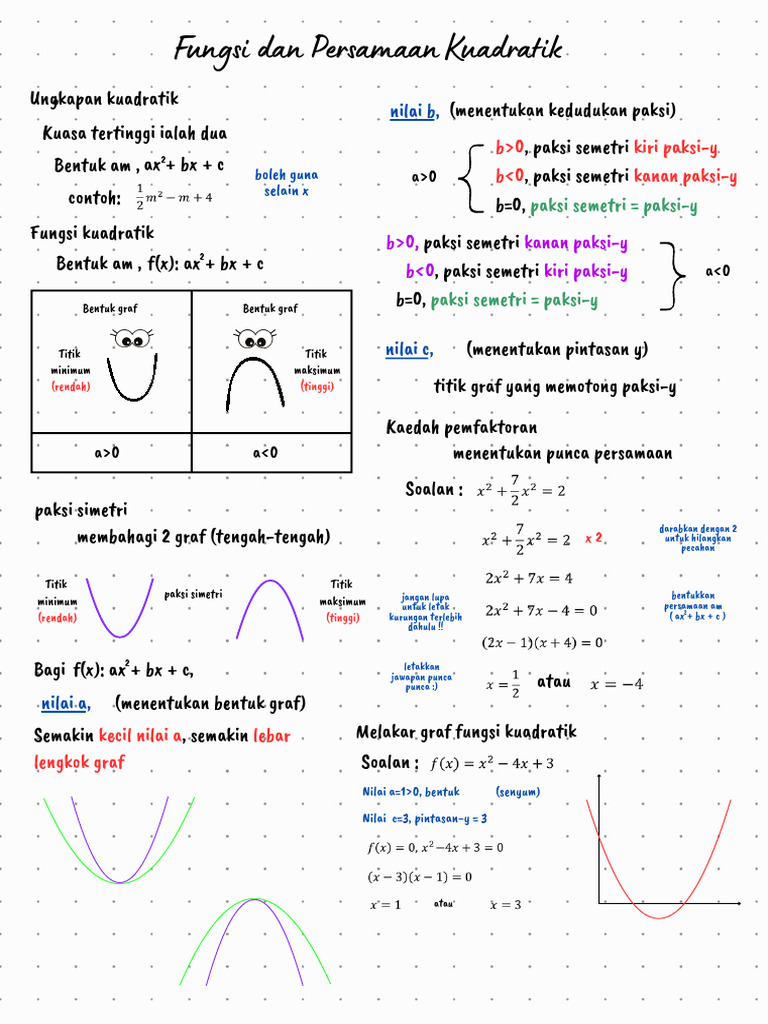 Fungsi dan Persamaan Kuadratik
Ungkapan kuadratik
Kuasa tertinggi ialah dua
Bentuk am , ax²+ bx + c
boleh guna
selain x
contoh: 1/2 m² − m + 4
Fungsi kuadratik
Bentuk am , f(x): ax²+ bx + c
Bentuk graf
Titik
minimum
(rendah)
Bentuk graf
Titik
maksimum
(tinggi)
a>0
a<0
paksi simetri
membahagi 2 graf (tengah-tengah)
Titik
minimum
(rendah)
paksi simetri
Titik
maksimum
(tinggi)
Bagi f(x): ax²+ bx + c,
nilai a, (menentukan bentuk graf)
Semakin kecil nilai a, semakin lebar
lengkok graf
nilai b, (menentukan kedudukan paksi)
a>0
b>0, paksi semetri kiri paksi-y
b<0, paksi semetri kanan paksi-y
b=0, paksi semetri = paksi-y
b>0, paksi semetri kanan paksi-y
b<0, paksi semetri kiri paksi-y
b=0, paksi semetri = paksi-y
a<0
nilai c, (menentukan pintasan y)
titik graf yang memotong paksi-y
Kaedah pemfaktoran
menentukan punca persamaan
Soalan : x² + 7/2 x² = 2
x² + 7/2 x² = 2 x 2
darabkan dengan 2
untuk hilangkan
pecahan
2x² + 7x = 4
2x² + 7x − 4 = 0
bentukkan
persamaan am
( ax²+ bx + c )
jangan lupa
untuk letak
kurungan terlebih
dahulu !!
(2x − 1)(x + 4) = 0
letakkan
jawapan punca
punca :)
x = 1/2 atau x = −4
Melakar graf fungsi kuadratik
Soalan : f(x) = x² − 4x + 3
Nilai a=1>0, bentuk (senyum)
Nilai c=3, pintasan-y = 3
f(x) = 0, x²−4x + 3 = 0
(x − 3)(x − 1) = 0
x = 1 atau x = 3